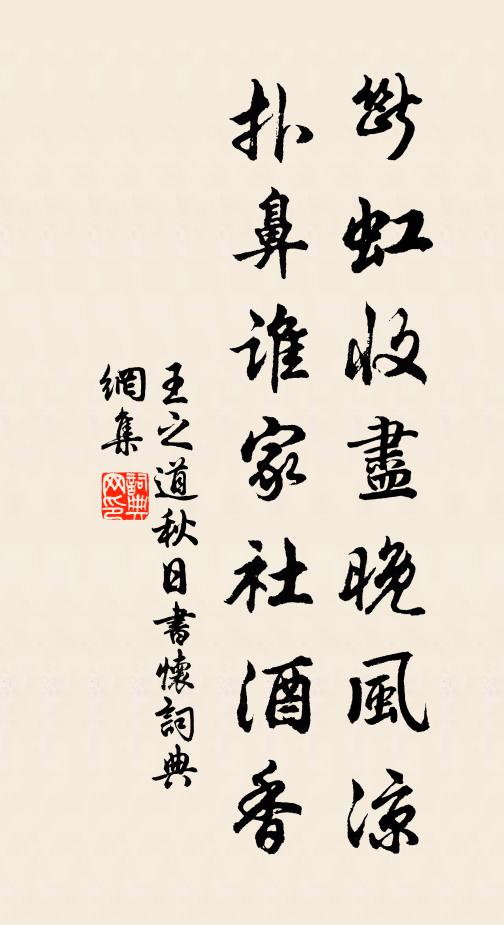 斷虹收盡晚風涼
扑鼻誰家社酒香
王之道秋日書懷詞典
網集
詞典
网印